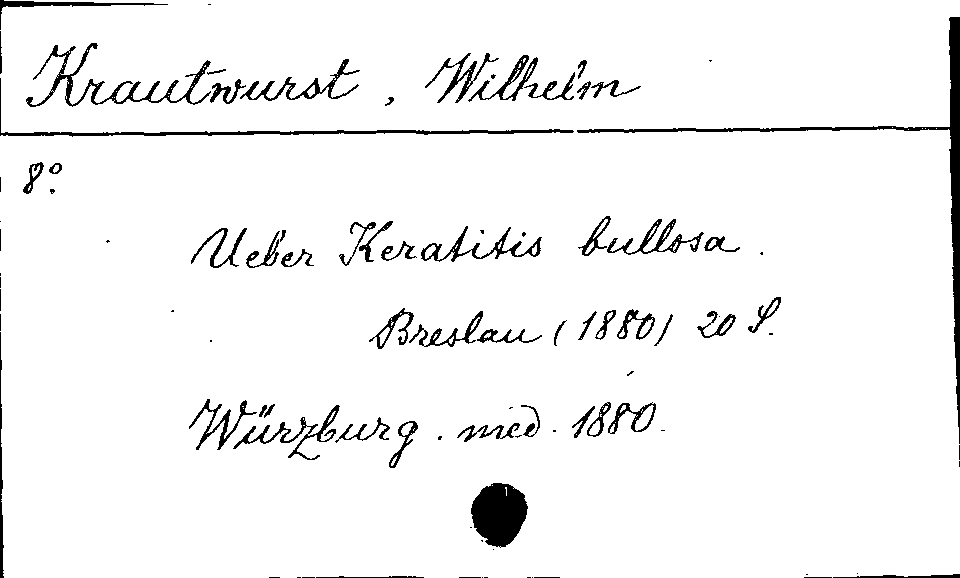 Krautwurst, Wilhelm
8°.
Ueber Keratitis bullosa.
Breslau (1880) 20 S.
Würzburg. med. 1880.